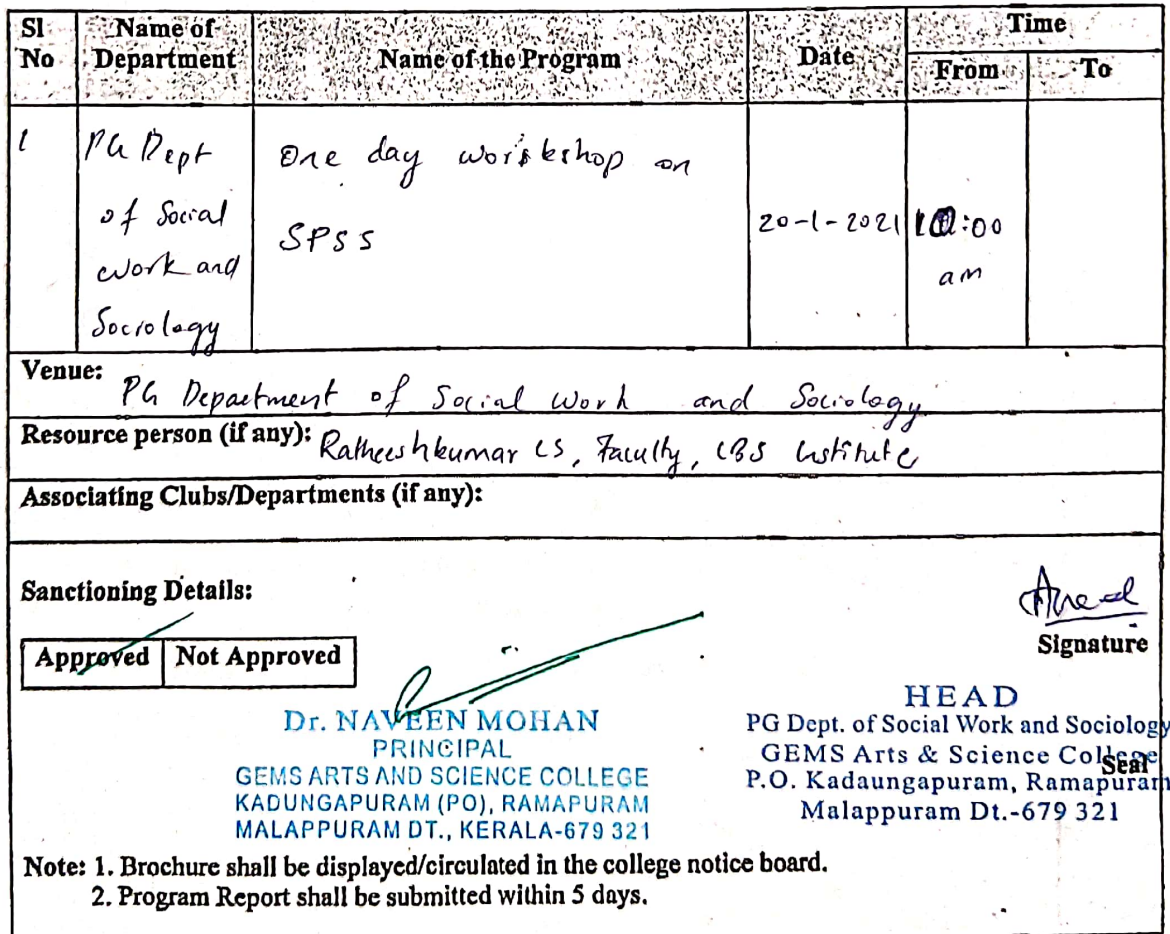 Sl No
Name of Department
Name of the Program
Date
Time
From
To
1
PG Dept
of Social
work and
Sociology
One day workshop on
SPSS
20-1-2021
10:00
am
Venue: PG Department of Social Work and Sociology
Resource person (if any): Ratheeshkumar CS, Faculty, CBS Institute
Associating Clubs/Departments (if any):
Sanctioning Details:
Approved
Not Approved
Signature
Dr. NAVEEN MOHAN
PRINCIPAL
GEMS ARTS AND SCIENCE COLLEGE
KADUNGAPURAM (PO), RAMAPURAM
MALAPPURAM DT., KERALA-679 321
HEAD
PG Dept. of Social Work and Sociology
GEMS Arts & Science College
Seal
P.O. Kadaungapuram, Ramapuram
Malappuram Dt.-679 321
Note: 1. Brochure shall be displayed/circulated in the college notice board.
2. Program Report shall be submitted within 5 days.